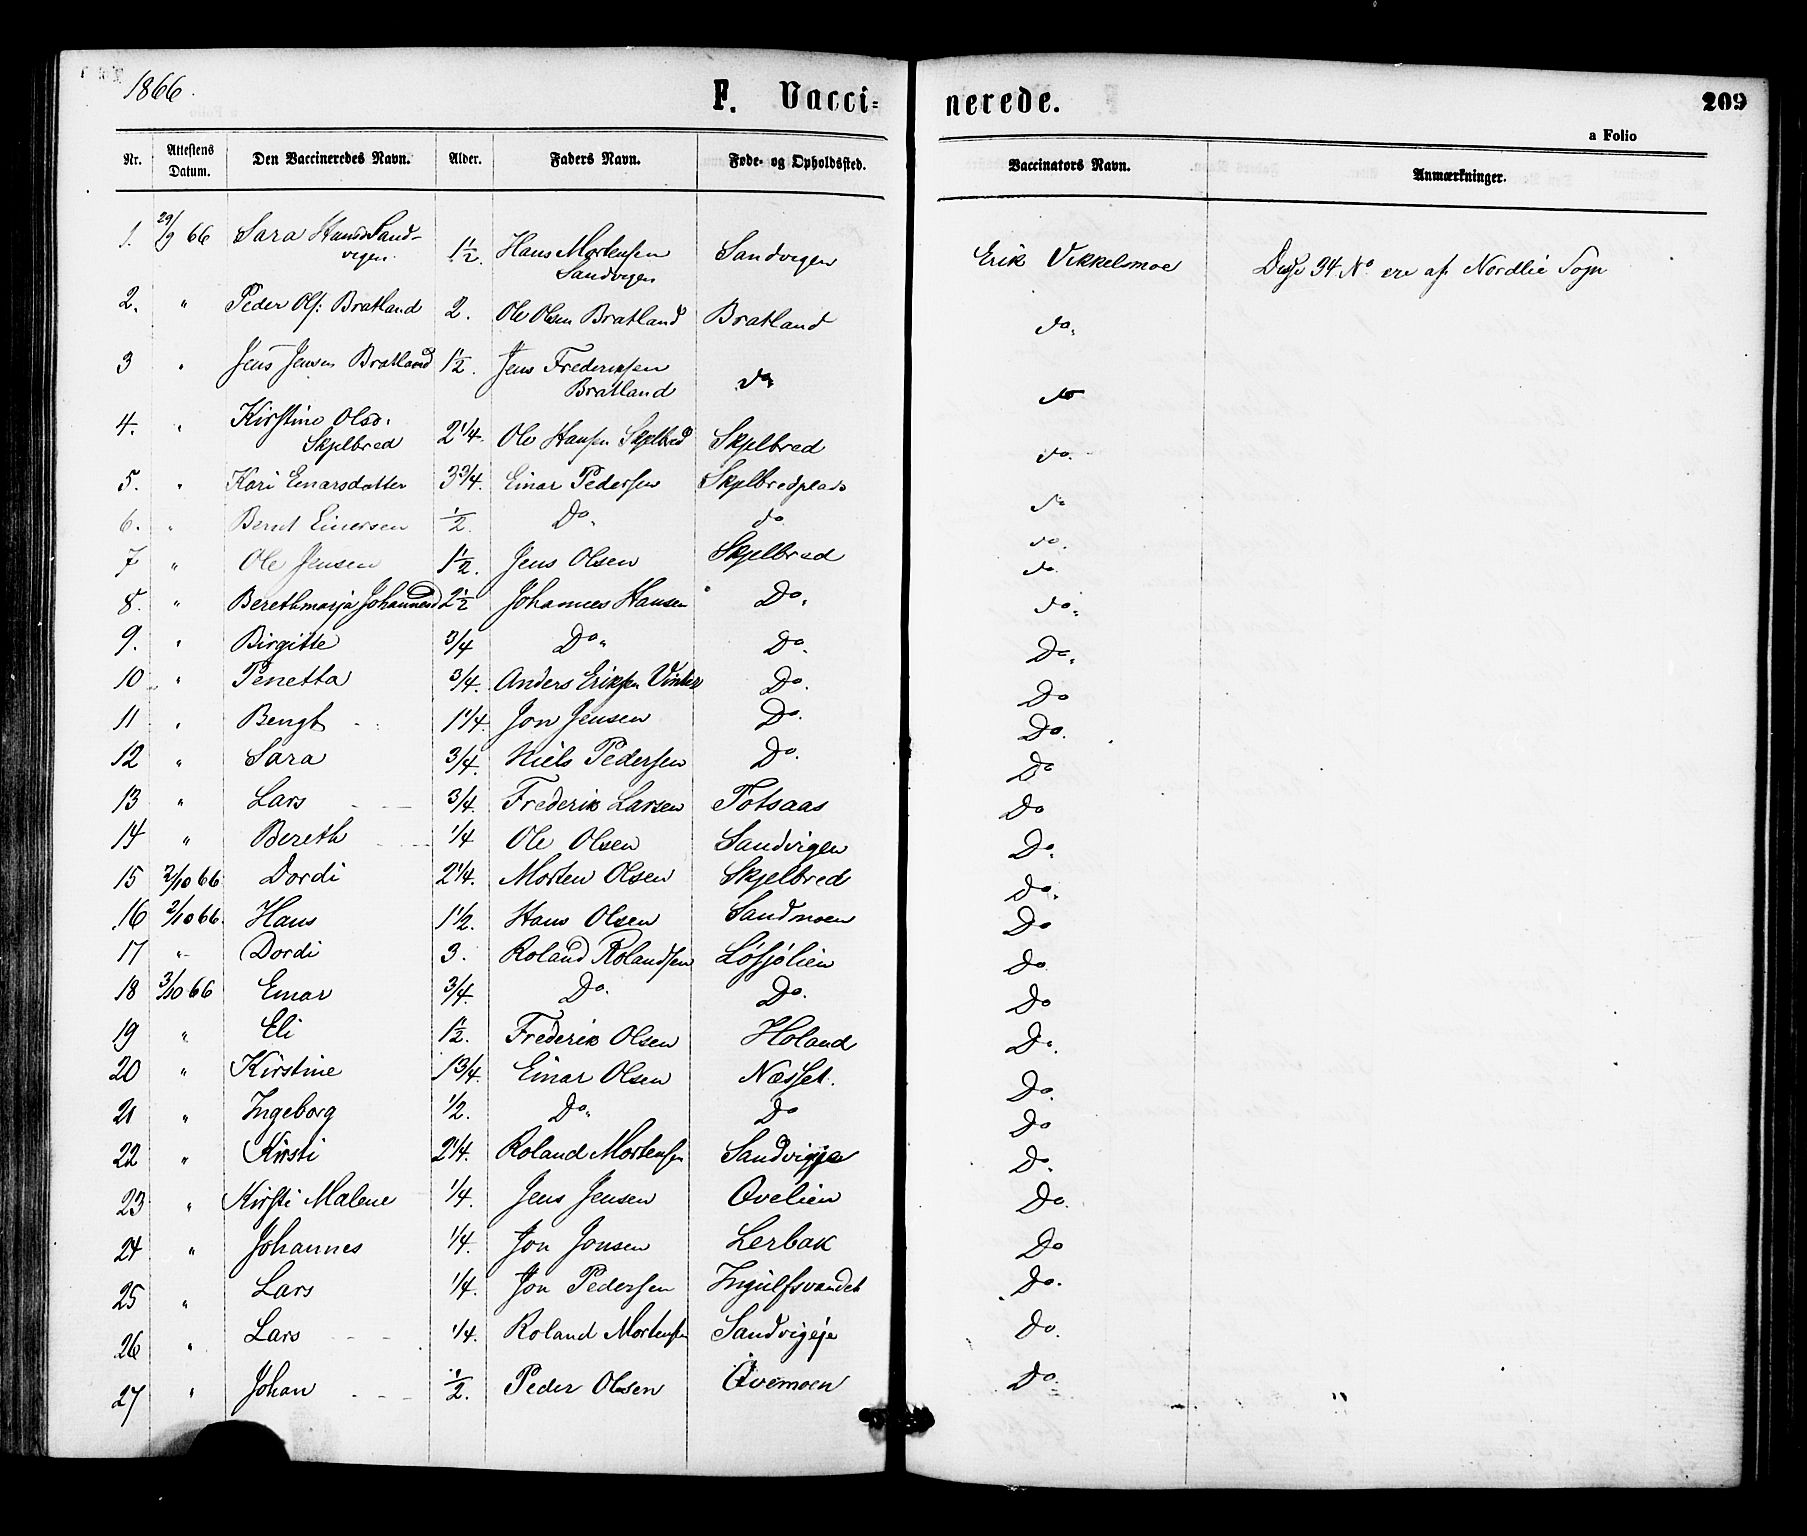 1866.
F. Vacci-
nerede.
209
a Folio
Nr. Attestens Datum. Den Vaccineredes Navn. Alder. Faders Navn. Føde- og Opholdssted. Vaccinators Navn. Anmærkninger.
1. 29/9 66 Sara Hansd Sand-
vigen. 1 1/2. Hans Mortensen
Sandvigen Sandvigen Erik Vekkelsmoe Disse 34 No ere af Nordlie Sogn
2. " Peder Ols: Bratland 2. Ole Olsen Bratland Bratland do.
3 " Jens Jensen Bratland 1 1/2. Jens Frederiksen
Bratland do do
4. " Kirstine Olsd.
Skjelbred 2 1/4. Ole Hansen Skjelbred Skjelbred do.
5. " Kari Einarsdatter 3 3/4. Einar Pedersen Skjelbredplads do
6. " Bernt Einersen 1/2 Do. do do.
7 " Ole Jensen 1 1/2. Jens Olsen Skjelbred do.
8. " Berethmarja Johannesd 2 1/2 Johannes Hansen Do. do.
9. " Birgitte 3/4 Do. Do. Do.
10 " Penetta 3/4. Anders Eriksen Vinter Do. Do
11 " Bengt 1 1/4. Jon Jensen Do. Do.
12 " Sara 3/4. Niels Pedersen Do. Do
13 " Lars 3/4. Frederik Larsen Totsaas Do
14 " Bereth 1/4 Ole Olsen Sandvigen Do.
15 2/10 66 Dordi 2 1/4. Morten Olsen Skjelbred Do.
16 2/10 66. Hans 1 1/2. Hans Olsen Sandmoen Do
17 " Dordi 3. Roland Rolandsen Løfsjølien Do
18 3/10 66 Einar 3/4. Do. Do. Do
19 " Eli 1 1/2. Frederik Olsen Holand Do.
20 " Kirstine 1 3/4. Einar Olsen Næsset. Do.
21 " Ingeborg 1/2. Do. Do Do
22 " Kirsti 2 1/4. Roland Mortensen Sandvigeje Do.
23 " Kirsti Malene 1/4. Jens Jensen Qvelien Do.
24 " Johannes 1/4. Jon Jonsen Lerbak Do
25 " Lars 1/4. Jon Pedersen Ingulfsvandet Do.
26 " Lars 1/4. Roland Mortensen Sandvigeje Do.
27 " Johan 1/2. Peder Olsen Qvemoen Do.